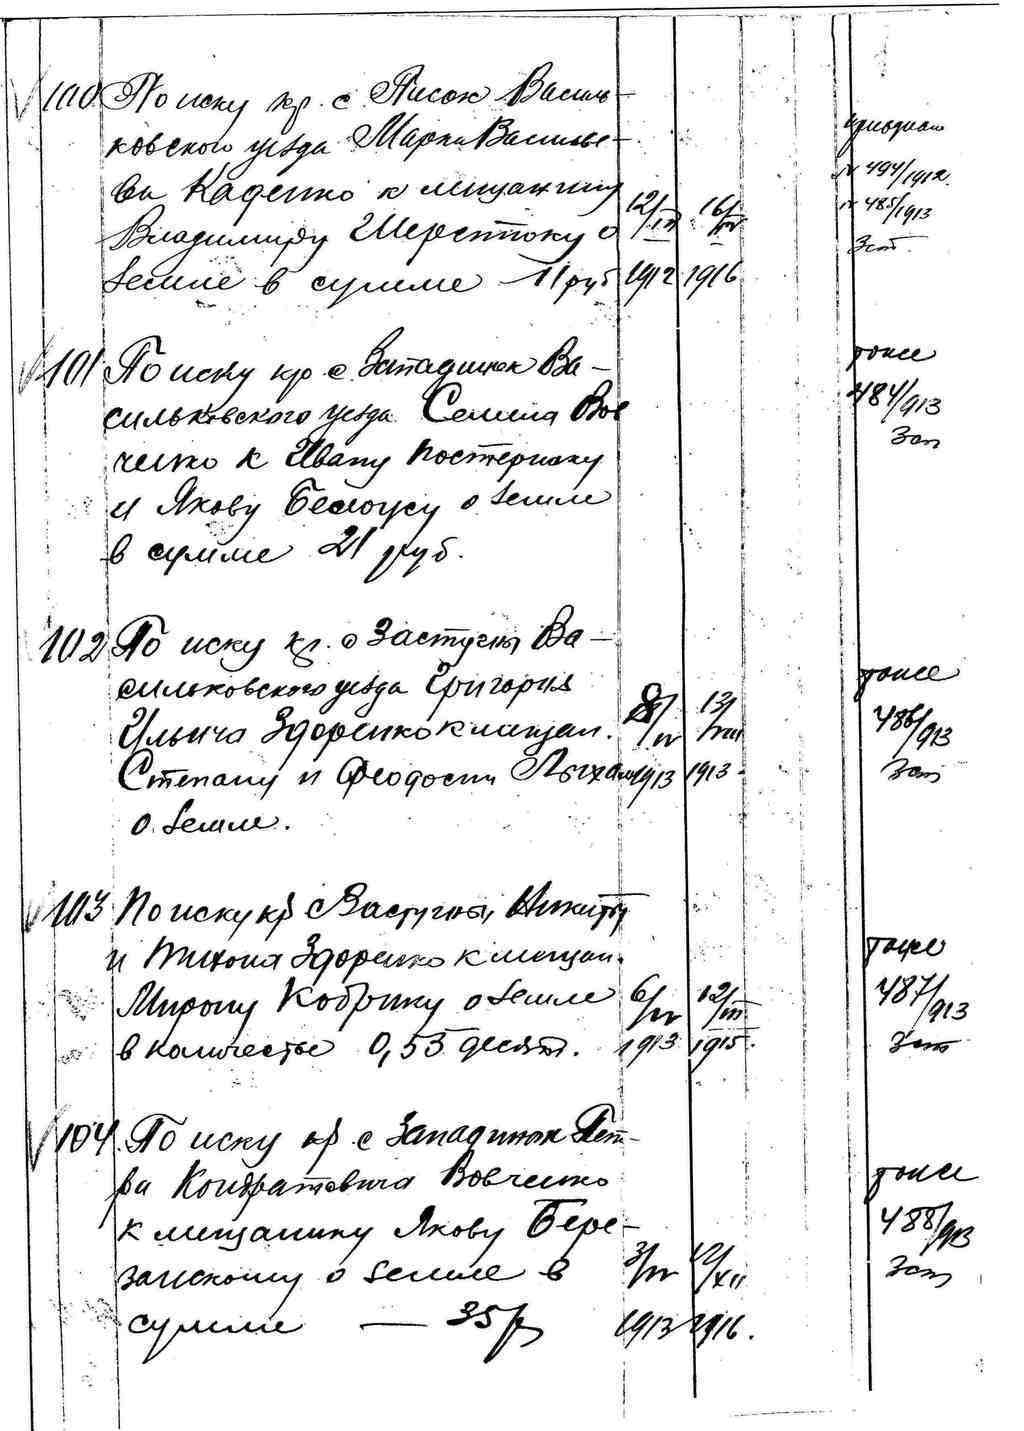 100 По иску кр. с. Писок Василь-
ковского уезда Марка Василье-
ва Каденко к мещанину
Владимиру Шерстюку о
земле в сумме 11 руб
12/III 1912
16/IV 1916
№ 494/1912.
№ 485/1913
Зап.
101 По иску кр с. Западинок Ва-
сильковского уезда Семена Вов
ченко к Ивану Костернаку
и Якову Белоусу о земле
в сумме 21 руб.
тоже
484/913
Зап
102 По иску кр. с Застугны Ва-
сильковского уезда Григория
Ильича Здоренко к мещан.
Степану и Феодосию
о земле.
8/IV 1913
13/VIII 1913
тоже
486/913
Зап
103 По иску кр с Застугны, Никиты
и Тихона Здоренко к мещан.
Мирону Кобрину о земле
в количестве 0,53 десят.
6/IV 1913
12/III 1915.
тоже
487/913
Зап
104 По иску кр. с Западинок Пет-
ра Кондратовича Вовченко
к мещанину Якову Бере-
занскому о земле в
сумме — 35 р
3/IV 1913
12/XII 1916.
тоже
488/913
Зап